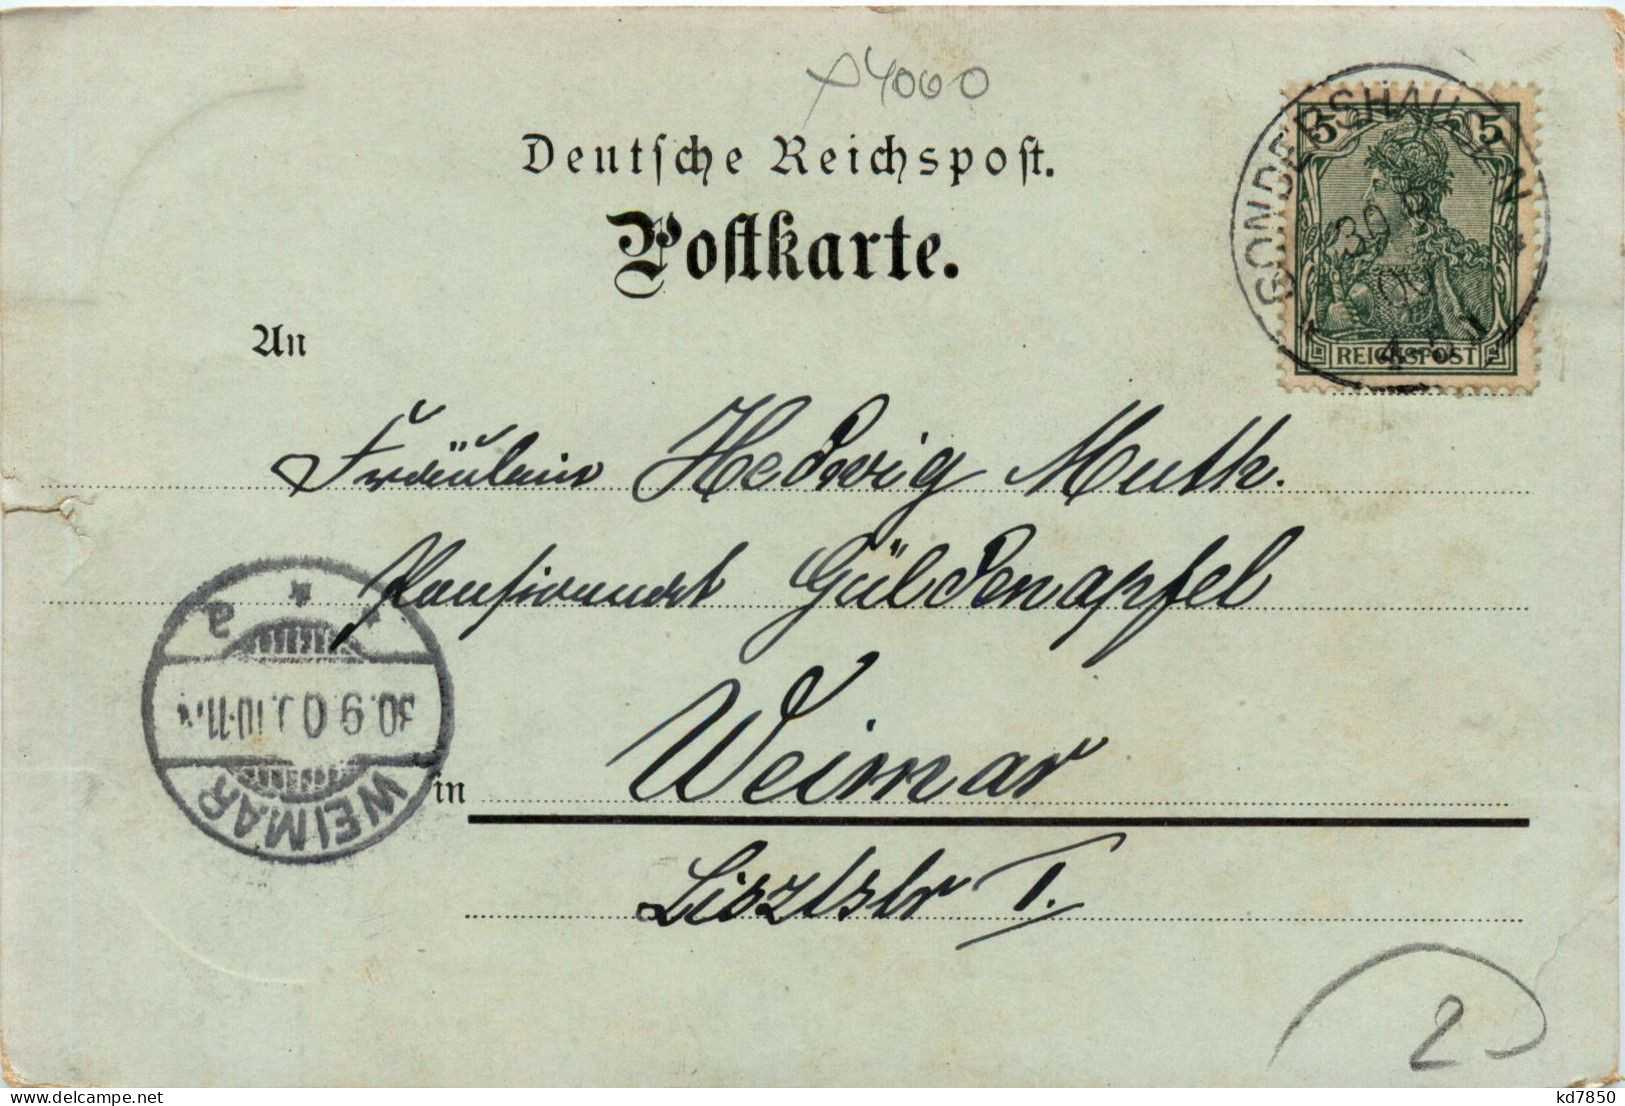 4060
Deutsche Reichspost.
Postkarte.
SONDERSHAUSEN
30 9
00
4-5 N
5 5
REICHSPOST
An
Fräulein Hedwig Muth.
Pensionat Güldenapfel
WEIMAR
30.9.00.10-11 N.
in Weimar
Lisztstr I.
2
kd7850